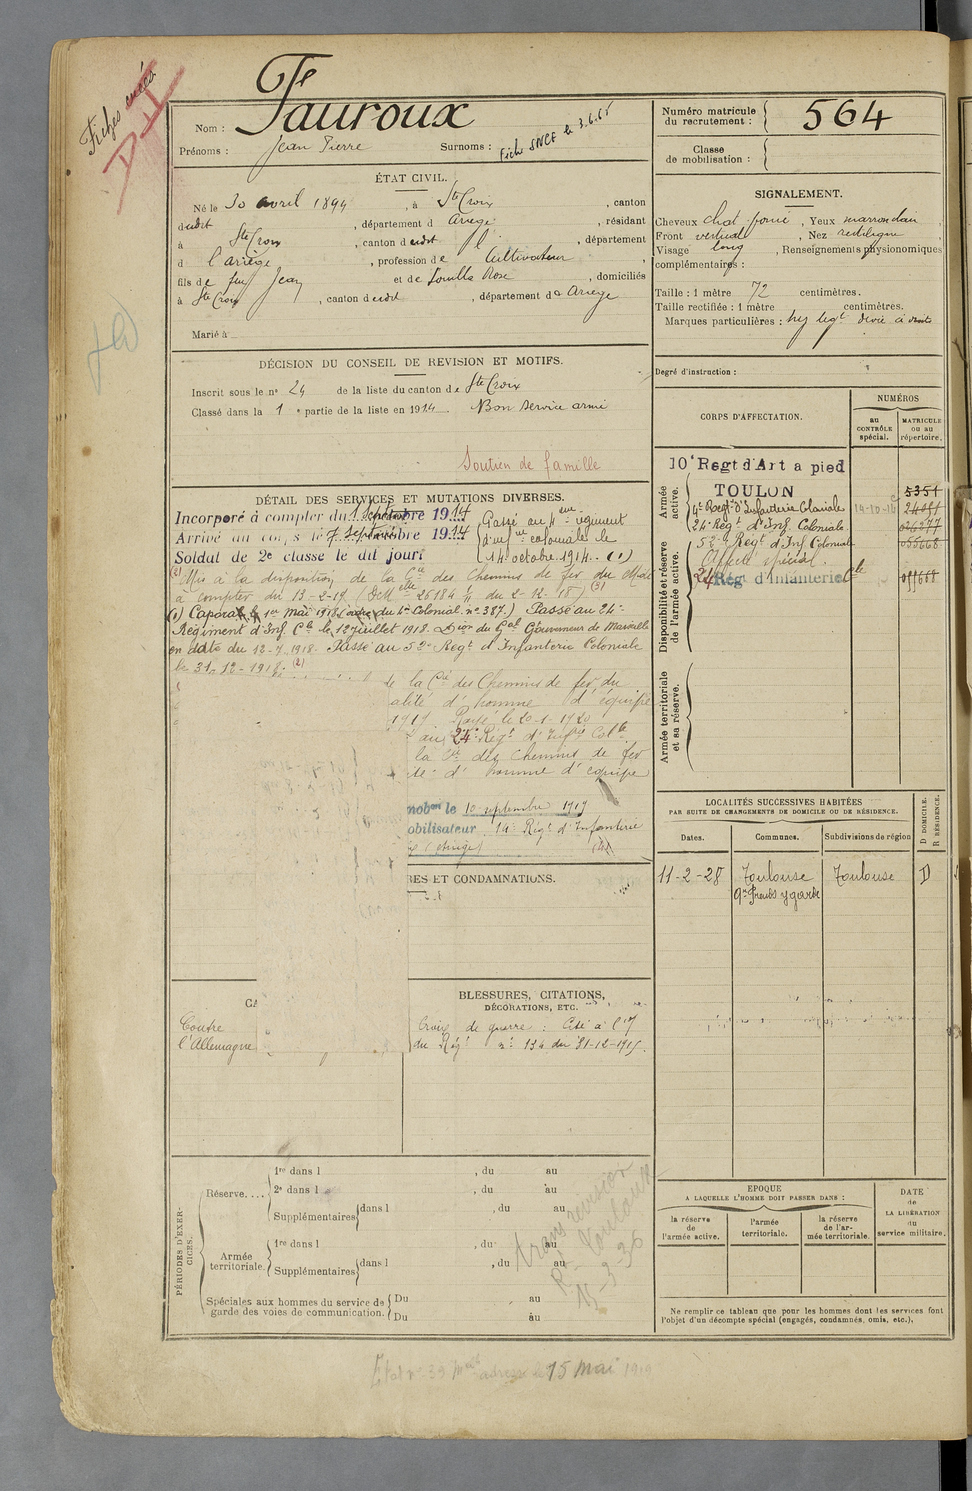 Fiches créées
Nom : Fauroux
Prénoms : Jean Pierre Surnoms : Fiche SNCF le 3.6.65
Numéro matricule du recrutement : 564
Classe de mobilisation :
ÉTAT CIVIL.
Né le 30 avril 1894, à Ste Croix, canton
dudit, département d Ariège, résidant
à Ste Croix, canton dudit, département
d l'ariège, profession de Cultivateur
fils de feu Jean et de Rose, domiciliés
à Ste Croix, canton dudit, département d Ariège
Marié à
DÉCISION DU CONSEIL DE REVISION ET MOTIFS.
Inscrit sous le n° 24 de la liste du canton de Ste Croix
Classé dans la 1e partie de la liste en 1914. Bon service armé
Soutien de famille
SIGNALEMENT.
Cheveux chat. foncé, Yeux marron clair
Front vertical, Nez rectiligne
Visage long, Renseignements physionomiques
complémentaires :
Taille : 1 mètre 72 centimètres.
Taille rectifiée : 1 mètre centimètres.
Marques particulières :
Degré d'instruction :
DÉTAIL DES SERVICES ET MUTATIONS DIVERSES.
Incorporé à compter du 1 Septembre 1914
Arrivé au corps le 7 septembre 1914
Soldat de 2e classe le dit jour
Passé au 4eme régiment
d'infrie coloniale le
14 octobre 1914. (1)
(2) Mis à la disposition de la Cie des Chemins de fer du Midi
à compter du 13-2-19 (D. Melle 26184 du 2-12-18) (3)
(1) Caporal le 1er Mai 1918 (ordre du 4e Colonial n° 387.) Passé au 24e
Régiment d'Inf. Cle le 12 juillet 1918. Don du Gal Gouverneur de Marseille
en date du 12-7-1918. Passé au 52e Regt d'Infanterie Coloniale
le 31-12-1918. (2)
de la Cie des Chemins de fer du
alité d'homme d'équipe
1919. Rayé le 20-1-1920
au 24e Regt d'Infie Colle
la Cie des Chemins de fer
ité d'homme d'équipe
mobon le 10 septembre 1919
obilisateur 14e Régt d'Infanterie
CORPS D'AFFECTATION.
NUMÉROS
au CONTRÔLE spécial.
MATRICULE ou au répertoire.
Armée active.
10e Regt d'Art a pied
TOULON 5351
4e Regt d'Infanterie Coloniale 14-10-14 2485
24e Regt d'Inf. Coloniale
Disponibilité et réserve de l'armée active.
52e Regt d'Inf Coloniale
Affecté spécial.
24 Rég d'Infanterie Cle
Armée territoriale et sa réserve.
LOCALITÉS SUCCESSIVES HABITÉES
PAR SUITE DE CHANGEMENTS DE DOMICILE OU DE RÉSIDENCE.
Dates. Communes. Subdivisions de région D DOMICILE. R RÉSIDENCE.
11-2-28 Toulouse Toulouse D
RES ET CONDAMNATIONS.
CA
Contre
l'Allemagne
BLESSURES, CITATIONS,
DÉCORATIONS, ETC.
Croix de guerre : Cité à l'O/
du Régt n° 134 du 31-12-1915.
PÉRIODES D'EXERCICES.
Réserve....
1re dans l , du au
2e dans l , du au
Supplémentaires dans l , du au
Armée territoriale.
1re dans l , du au
Supplémentaires dans l , du au
Spéciales aux hommes du service de garde des voies de communication.
Du au
Du au
Toulouse
15-3-36
EPOQUE
A LAQUELLE L'HOMME DOIT PASSER DANS :
la réserve de l'armée active.
l'armée territoriale.
la réserve de l'armée territoriale.
DATE de LA LIBÉRATION du service militaire.
Ne remplir ce tableau que pour les hommes dont les services font
l'objet d'un décompte spécial (engagés, condamnés, omis, etc.).
Etat n° 39 adressé le 15 mai 1919